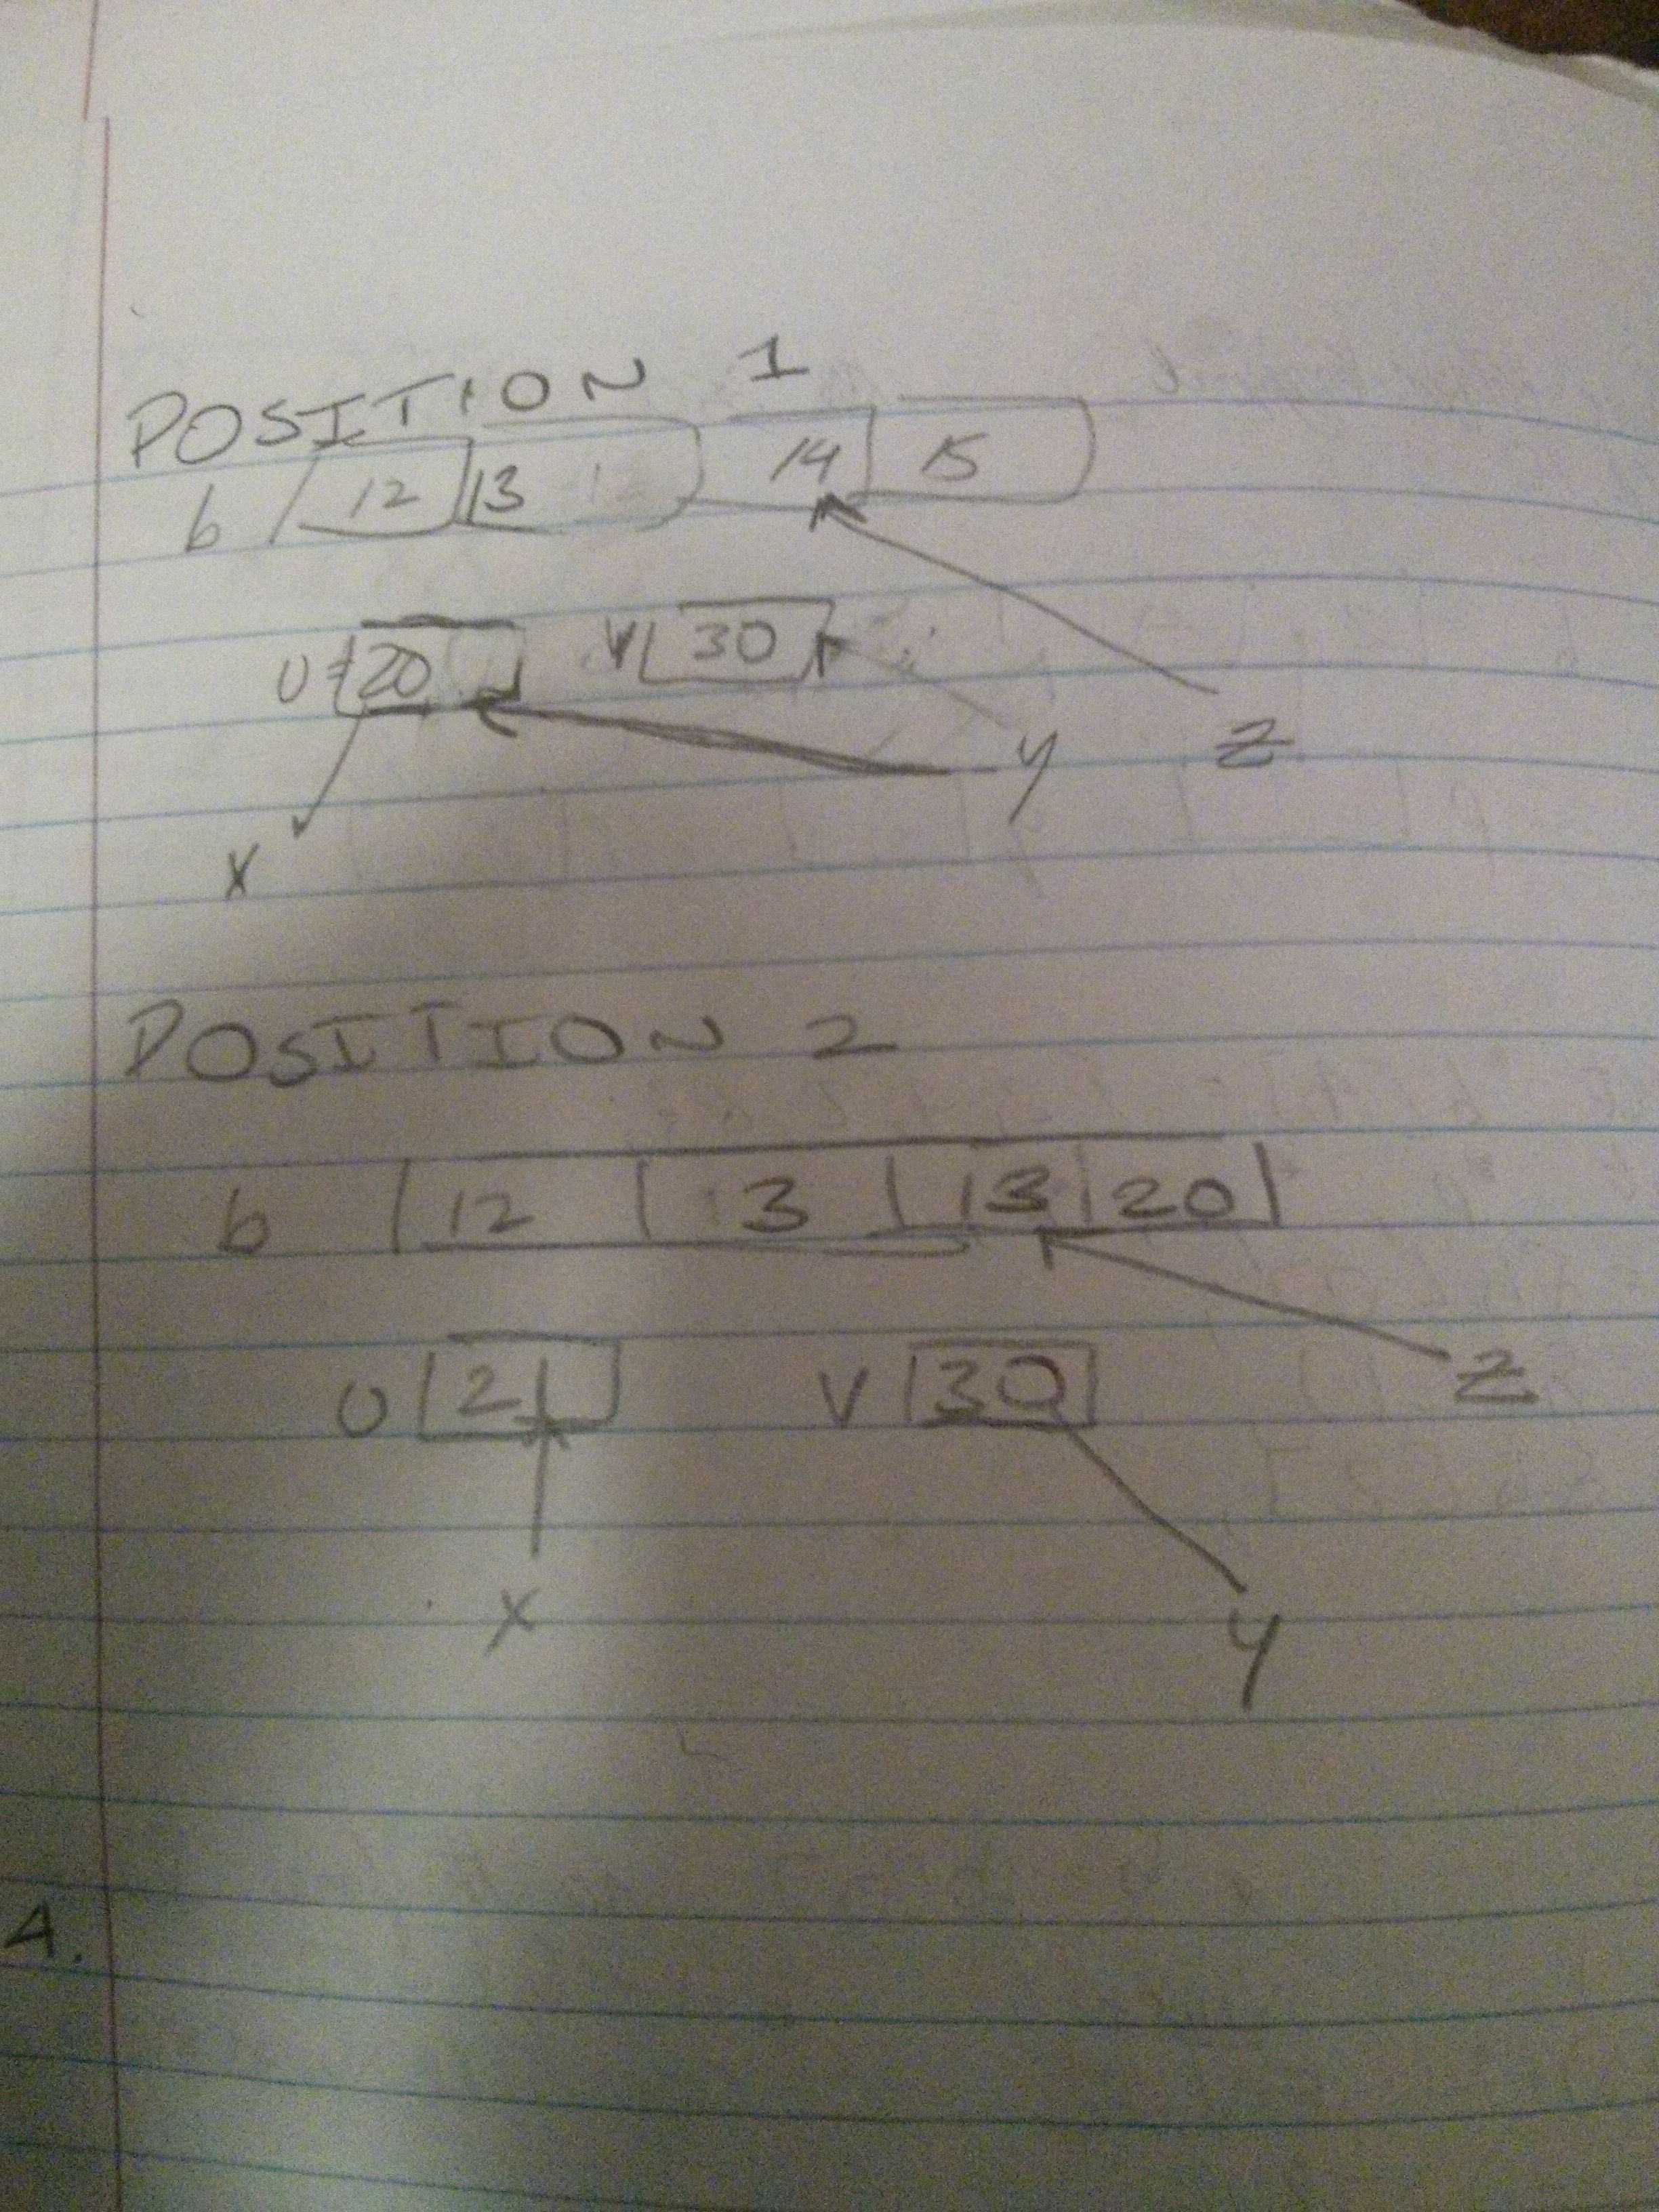 POSITION 1
b 12 13 14 15
U 20 V 30
y z
x
POSITION 2
b 12 3 13 20
U 21 V 30
z
x y
A.